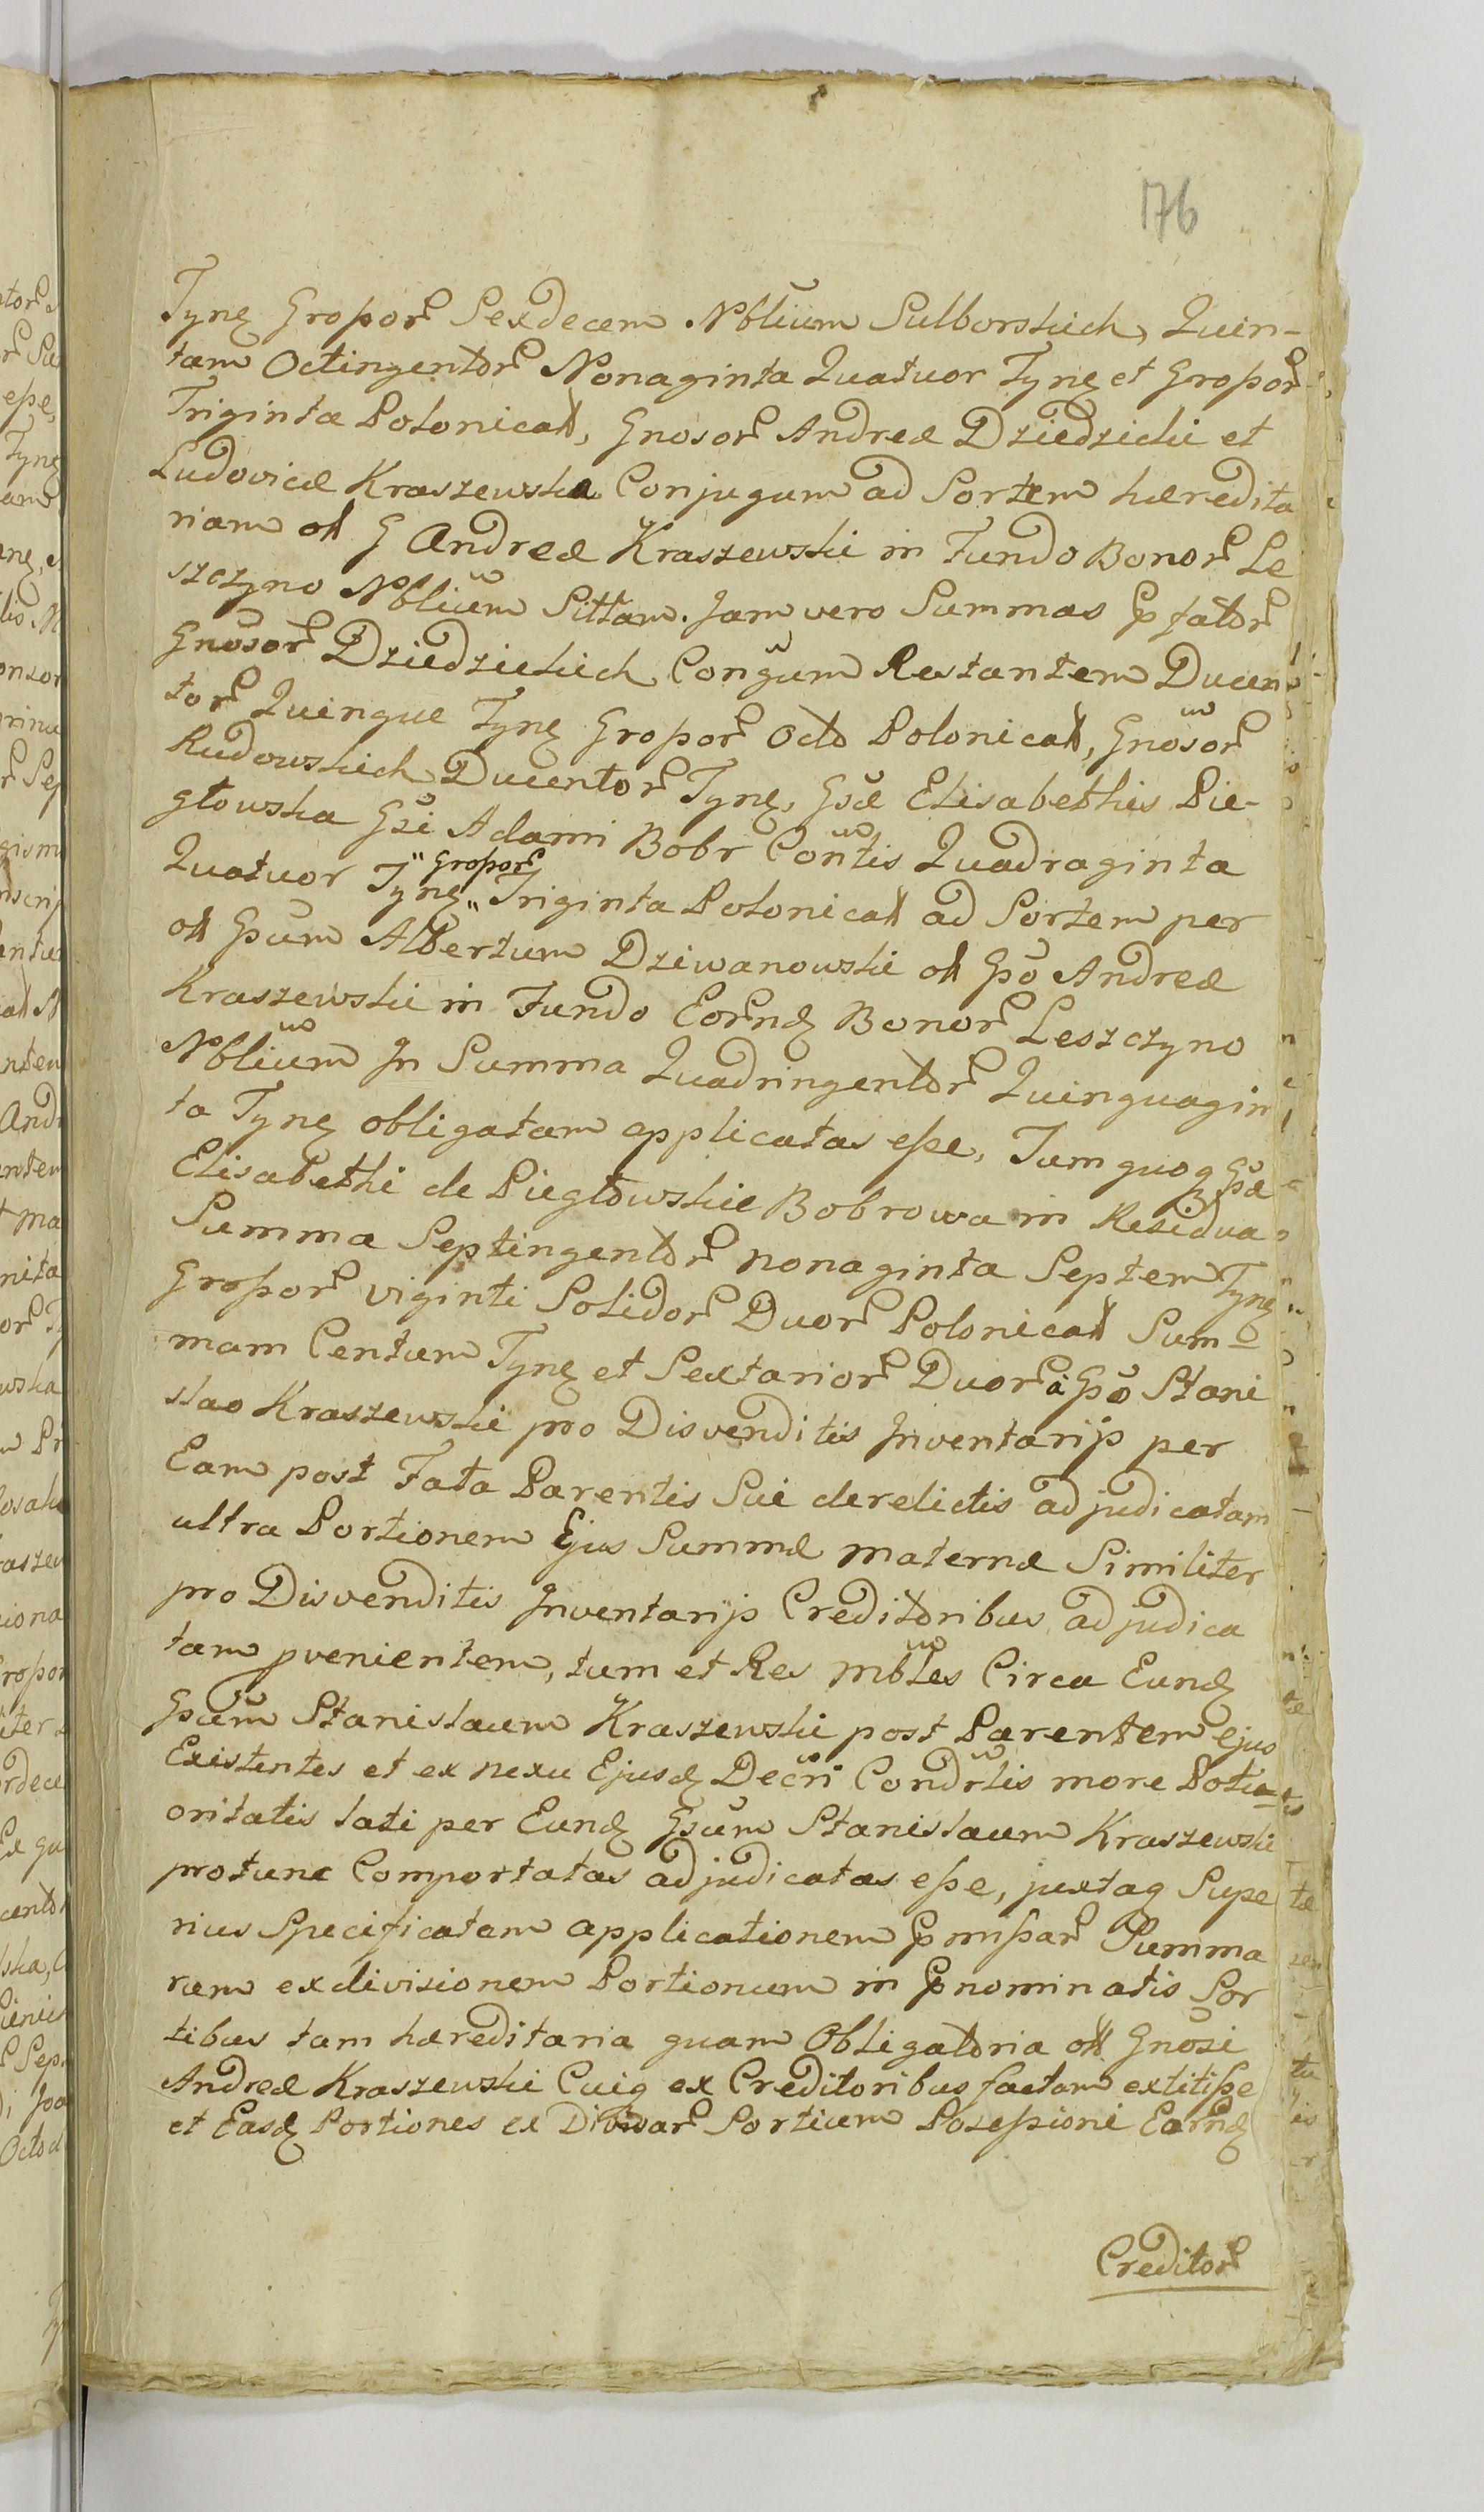 176
Tynf Großor Sexdecem Nblium Sulborskich, Quin-
tam Octingentor Nonaginta Quatuor Tynf et Großor
Triginta Polonical, Gnosor Andreæ Dziedzicki et
Ludovicæ Kraszewska Conjugum ad Sortem hæredita
riam ol G Andreæ Kraszewski in Fundo Bonor Le
szczyno Nblium Sittam. Jam vero Summas Pfator
Gnosor Dziedzickich Conjum Restantem Ducen
tor Quinque Tynf Großor Octo Polonical, Gnosor
Rudowskich Ducentor Tynf, Gsæ Elisabethis Pie-
głowska Gsi Adami Bobr Contis Quadraginta
Quatuor Tynf "Großor" Triginta Polonical ad Sortem per
ol Gsum Albertum Dziwanowski ol Gso Andreæ
Kraszewski in Fundo Eornd Bonor Leszczyno
Nblium In Summa Quadringentor Quinquagin
ta Tynf obligatam applicatas eße, Tum quoq Gsæ
Elisabethi de Piegłowskie Bobrowa in Residua
Summa Septingentor nonaginta Septem Tynf
Großor viginti Solidor Duor Polonical Sum-
mam Centum Tynf et Sextarior Duor à Gso Stani
slao Kraszewski pro Disvenditis Inventarijs per
Eam post Fata Parentis Sui derelictis adjudicatam
ultra Portionem Ejus Summæ maternæ Similiter
pro Disvenditis Inventarijs Creditoribus adjudica
tam pvenientem, tum et Res mbles Circa Eund
Gsum Stanislaum Kraszewski post Parentem ejus
Existentes et ex nexu Ejusd Decri Condrlis more Potio-
oritatis lati per Eund Gsum Stanislaum Kraszewski
protunc Comportatas adjudicatas eße, juxtaq Supe
rius Specificatam applicationem Pmißar Summa
rum exdivisionem Portionum in Pnominatis Sor
tibus tam hæreditaria quam Obligatoria ol Gnosi
Andreæ Kraszewski Cuiq ex Creditoribus factam extitiße
et Easd Portiones ex Divisar Sortium Poseßioni Earnd
Creditor